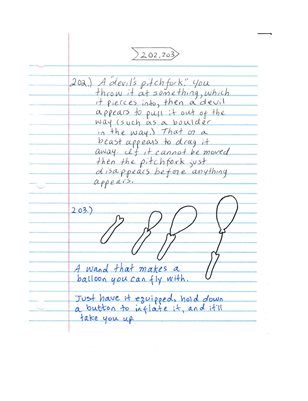 202,203
202.) A "devil's pitchfork." You
throw it at something, which
it pierces into, then a devil
appears to pull it out of the
way (such as a boulder
in the way.) That or a
beast appears to drag it
away. If it cannot be moved
then the pitchfork just
disappears before anything
appears.
203.)
A wand that makes a
balloon you can fly with.
Just have it equipped, hold down
a button to inflate it, and it'll
take you up.